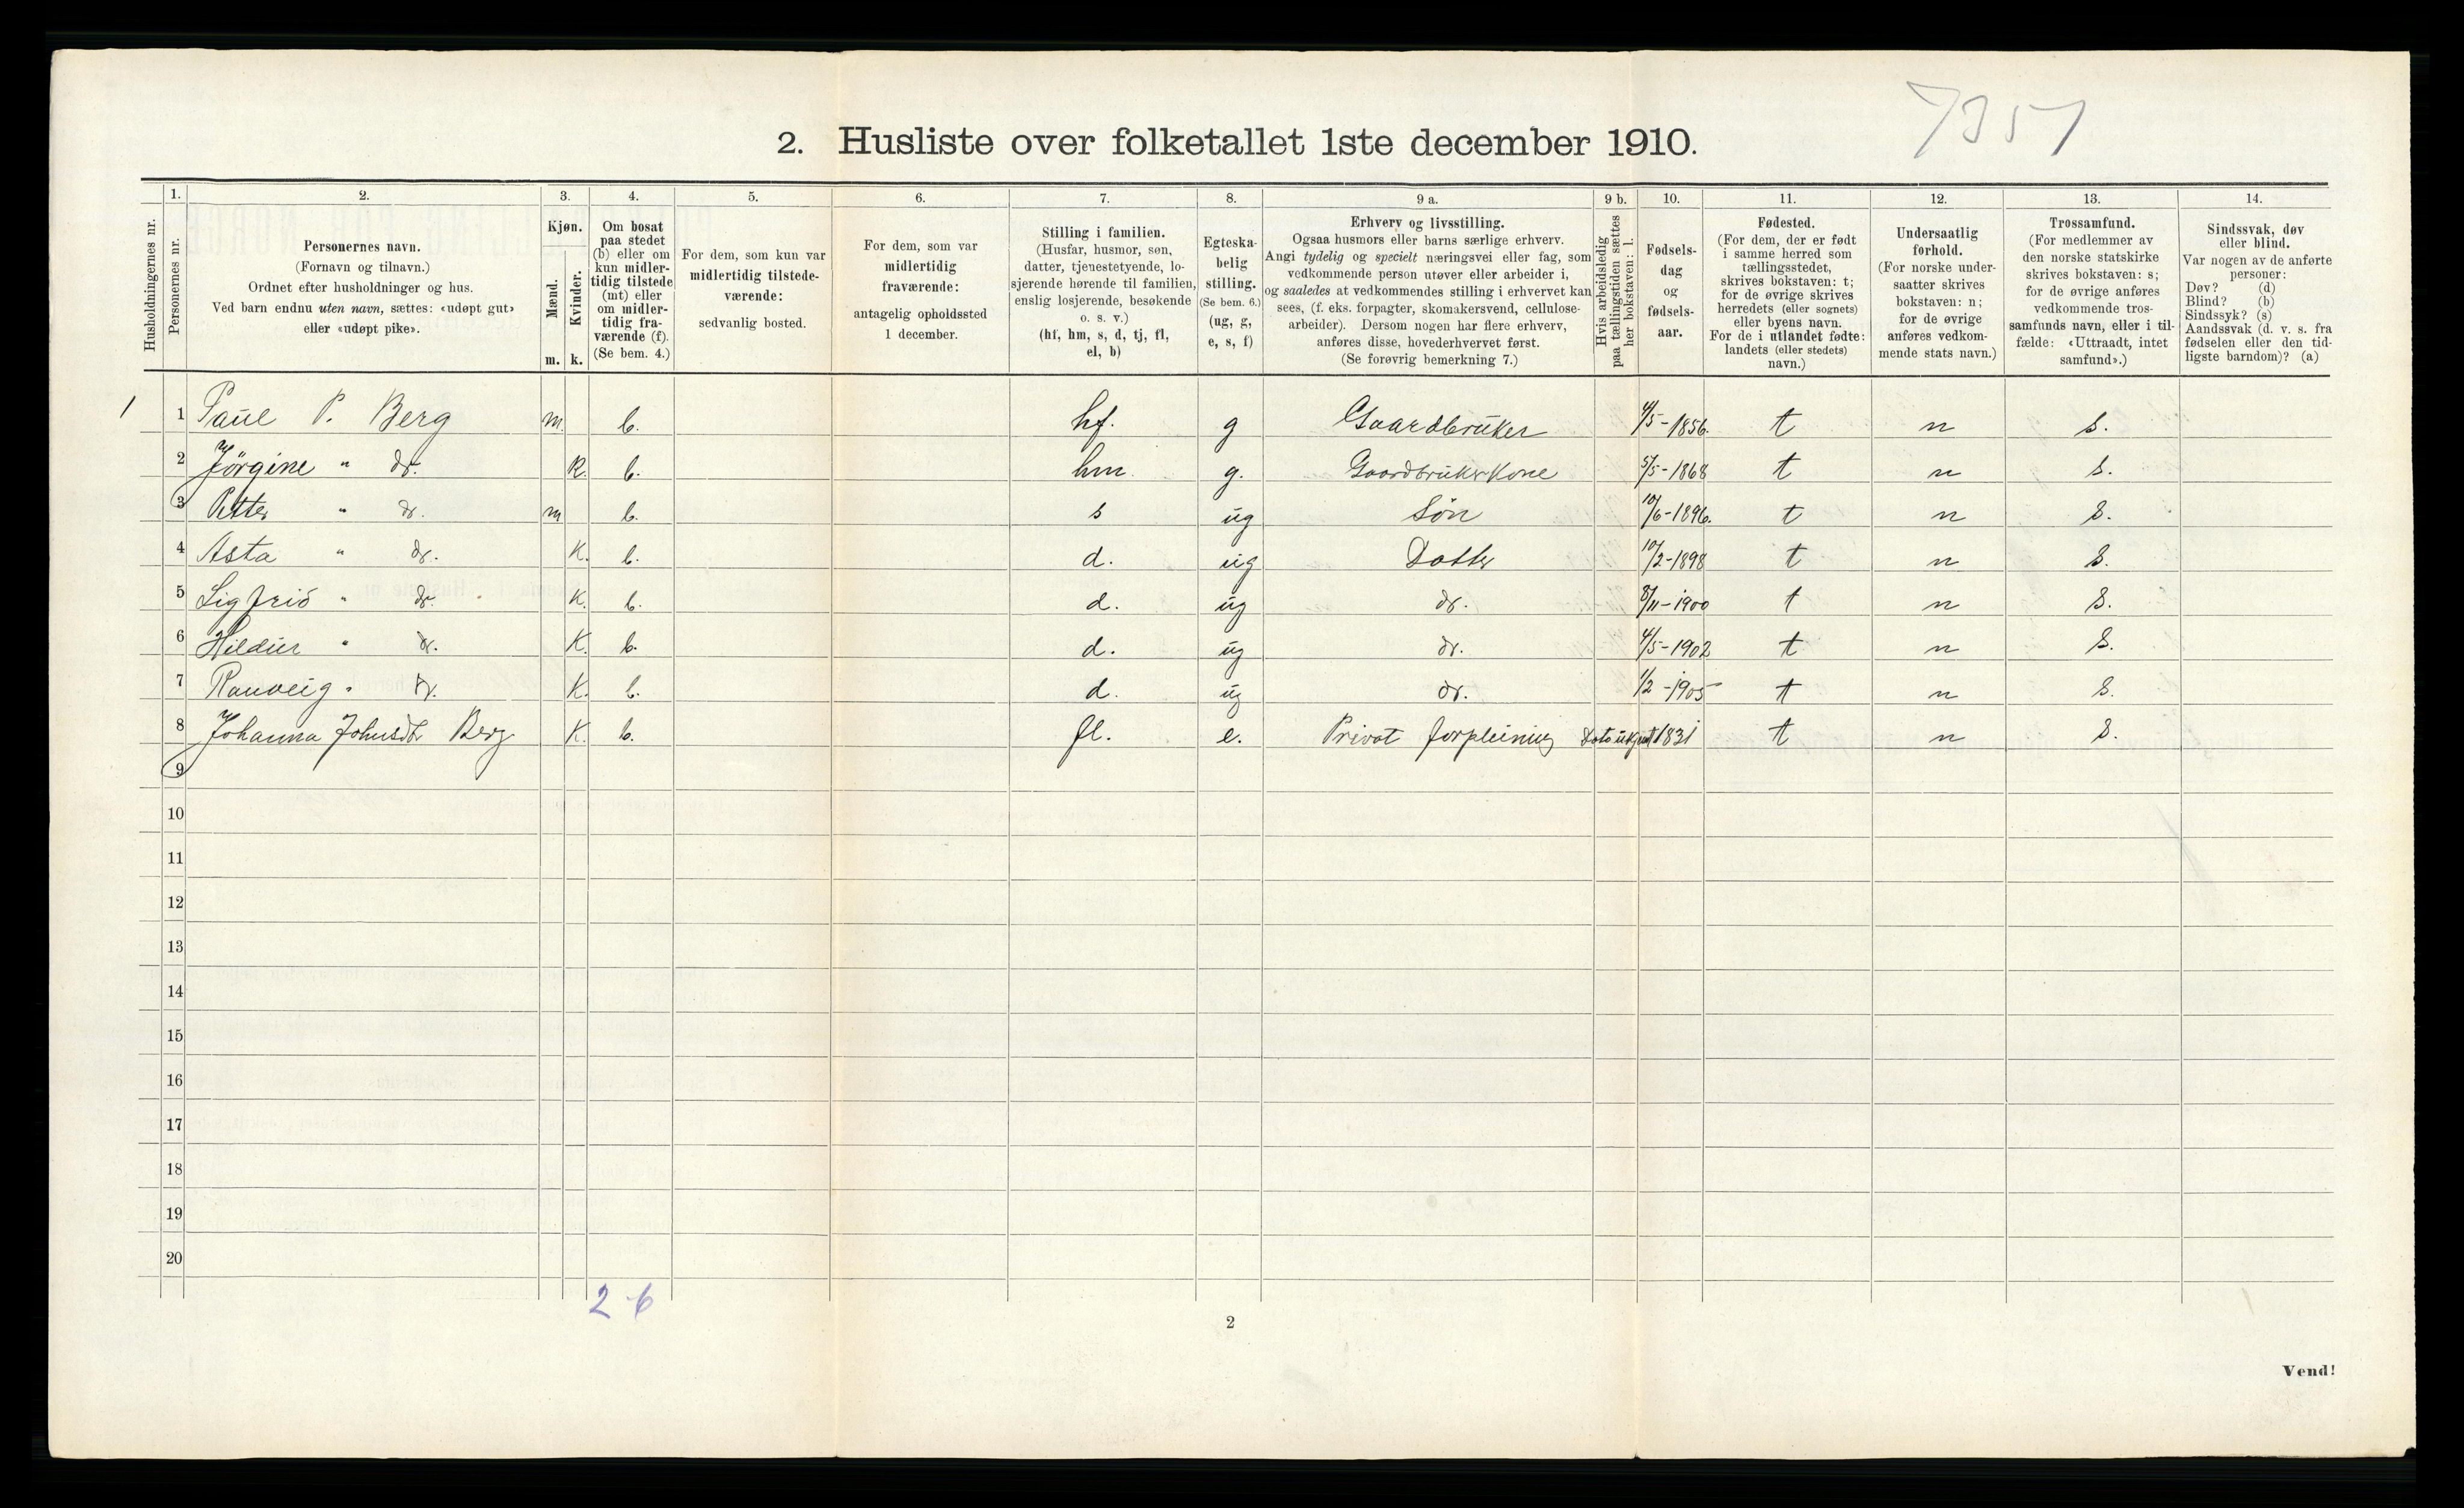 7351
2. Husliste over folketallet 1ste december 1910.
1. 2. 3. 4. 5. 6. 7. 8. 9 a. 9 b. 10. 11. 12. 13. 14.
Husholdningernes nr.
Personernes nr.
Personernes navn.
(Fornavn og tilnavn.)
Ordnet efter husholdninger og hus.
Ved barn endnu uten navn, sættes: «udøpt gut»
eller «udøpt pike».
Kjøn.
Mænd.
Kvinder.
m. k.
Om bosat
paa stedet
(b) eller om
kun midler-
tidig tilstede
(mt) eller
om midler-
tidig fra-
værende (f).
(Se bem. 4.)
For dem, som kun var
midlertidig tilstede-
værende:
sedvanlig bosted.
For dem, som var
midlertidig
fraværende:
antagelig opholdssted
1 december.
Stilling i familien.
(Husfar, husmor, søn,
datter, tjenestetyende, lo-
sjerende hørende til familien,
enslig losjerende, besøkende
o. s. v.)
(hf, hm, s, d, tj, fl,
el, b)
Egteska-
belig
stilling.
(Se bem. 6.)
(ug, g,
e, s, f)
Erhverv og livsstilling.
Ogsaa husmors eller barns særlige erhverv.
Angi tydelig og specielt næringsvei eller fag, som
vedkommende person utøver eller arbeider i,
og saaledes at vedkommendes stilling i erhvervet kan
sees, (f. eks. forpagter, skomakersvend, cellulose-
arbeider). Dersom nogen har flere erhverv,
anføres disse, hovederhvervet først.
(Se forøvrig bemerkning 7.)
Hvis arbeidsledig
paa tællingstiden sættes
her bokstaven: l.
Fødsels-
dag
og
fødsels-
aar.
Fødested.
(For dem, der er født
i samme herred som
tællingsstedet,
skrives bokstaven: t;
for de øvrige skrives
herredets (eller sognets)
eller byens navn.
For de i utlandet fødte:
landets (eller stedets)
navn.)
Undersaatlig
forhold.
(For norske under-
saatter skrives
bokstaven: n;
for de øvrige
anføres vedkom-
mende stats navn.)
Trossamfund.
(For medlemmer av
den norske statskirke
skrives bokstaven: s;
for de øvrige anføres
vedkommende tros-
samfunds navn, eller i til-
fælde: «Uttraadt, intet
samfund».)
Sindssvak, døv
eller blind.
Var nogen av de anførte
personer:
Døv? (d)
Blind? (b)
Sindssyk? (s)
Aandssvak (d. v. s. fra
fødselen eller den tid-
ligste barndom)? (a)
1 1 Paul P. Berg m. b. hf. g Gaardbruker 4/5-1856. t n s.
2 Jörgine " do. K. b. hm g. Gaardbruker Kone 5/5-1868 t n s.
3 Petter " do. m b. s ug Sön 10/6-1896. t n s.
4 Asta " do. K. b. d. ug Datter 10/2-1898 t n s.
5 Sigfrid " do. K. b. d. ug do. 8/11-1900 t n s.
6 Hildur " do. K. b. d. ug do. 4/5-1902 t n s.
7 Ranveig " do. K. b. d. ug do. 1/2-1905 t n s.
8 Johanna Johnsdtr Berg K. b. fl. e. Privat forpleining Dato ukjent 1831 t n s.
9
10
11
12
13
14
15
16
17
18
19
20
2-6
2
Vend!